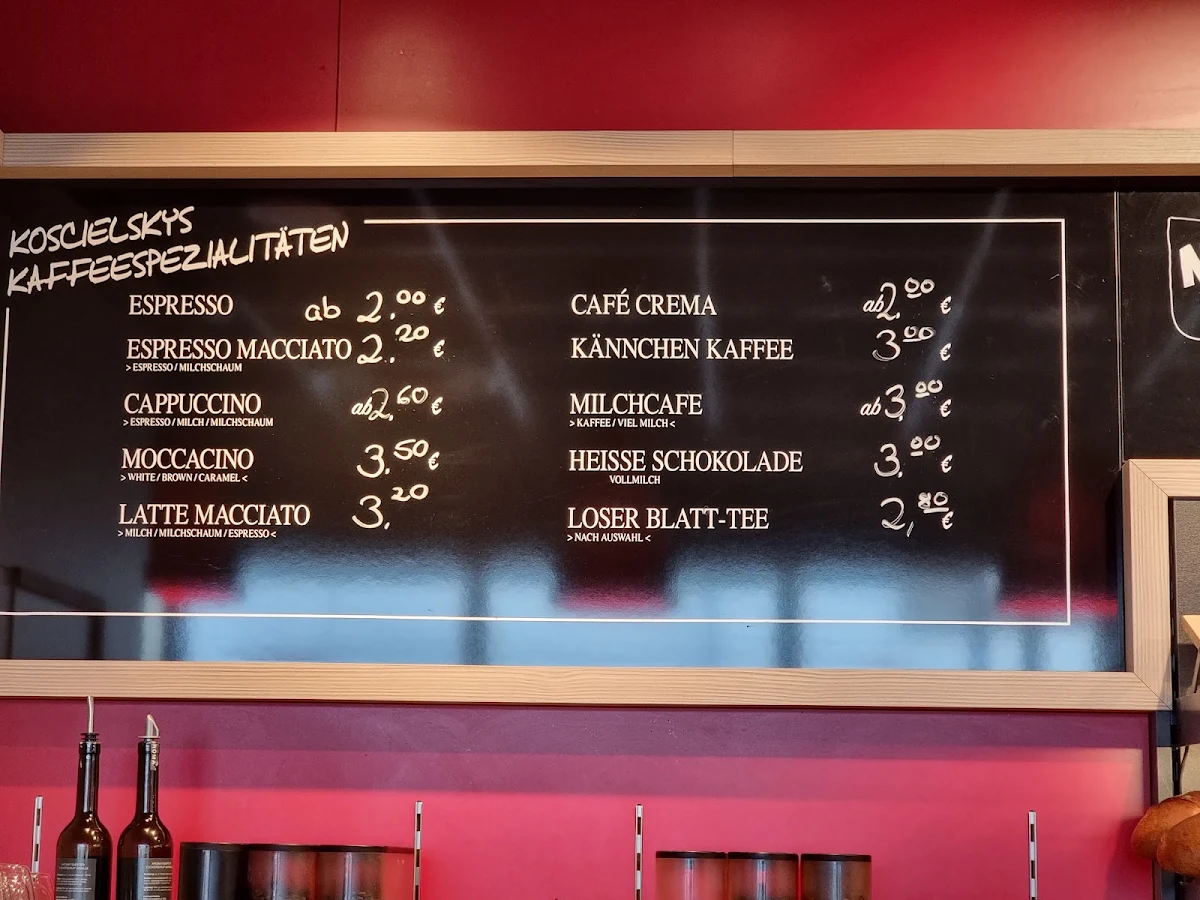 KOSCIELSKYS
KAFFEESPEZIALITÄTEN
ESPRESSO ab 2.00 €
ESPRESSO MACCIATO 2.20 €
> ESPRESSO / MILCHSCHAUM
CAPPUCCINO ab 2,60 €
> ESPRESSO / MILCH / MILCHSCHAUM
MOCCACINO 3.50 €
> WHITE / BROWN / CARAMEL <
LATTE MACCIATO 3.20
> MILCH / MILCHSCHAUM / ESPRESSO <
CAFÉ CREMA ab 2.00 €
KÄNNCHEN KAFFEE 3.00 €
MILCHCAFE ab 3,00 €
> KAFFEE / VIEL MILCH <
HEISSE SCHOKOLADE 3.00 €
VOLLMILCH
LOSER BLATT-TEE 2,80 €
> NACH AUSWAHL <